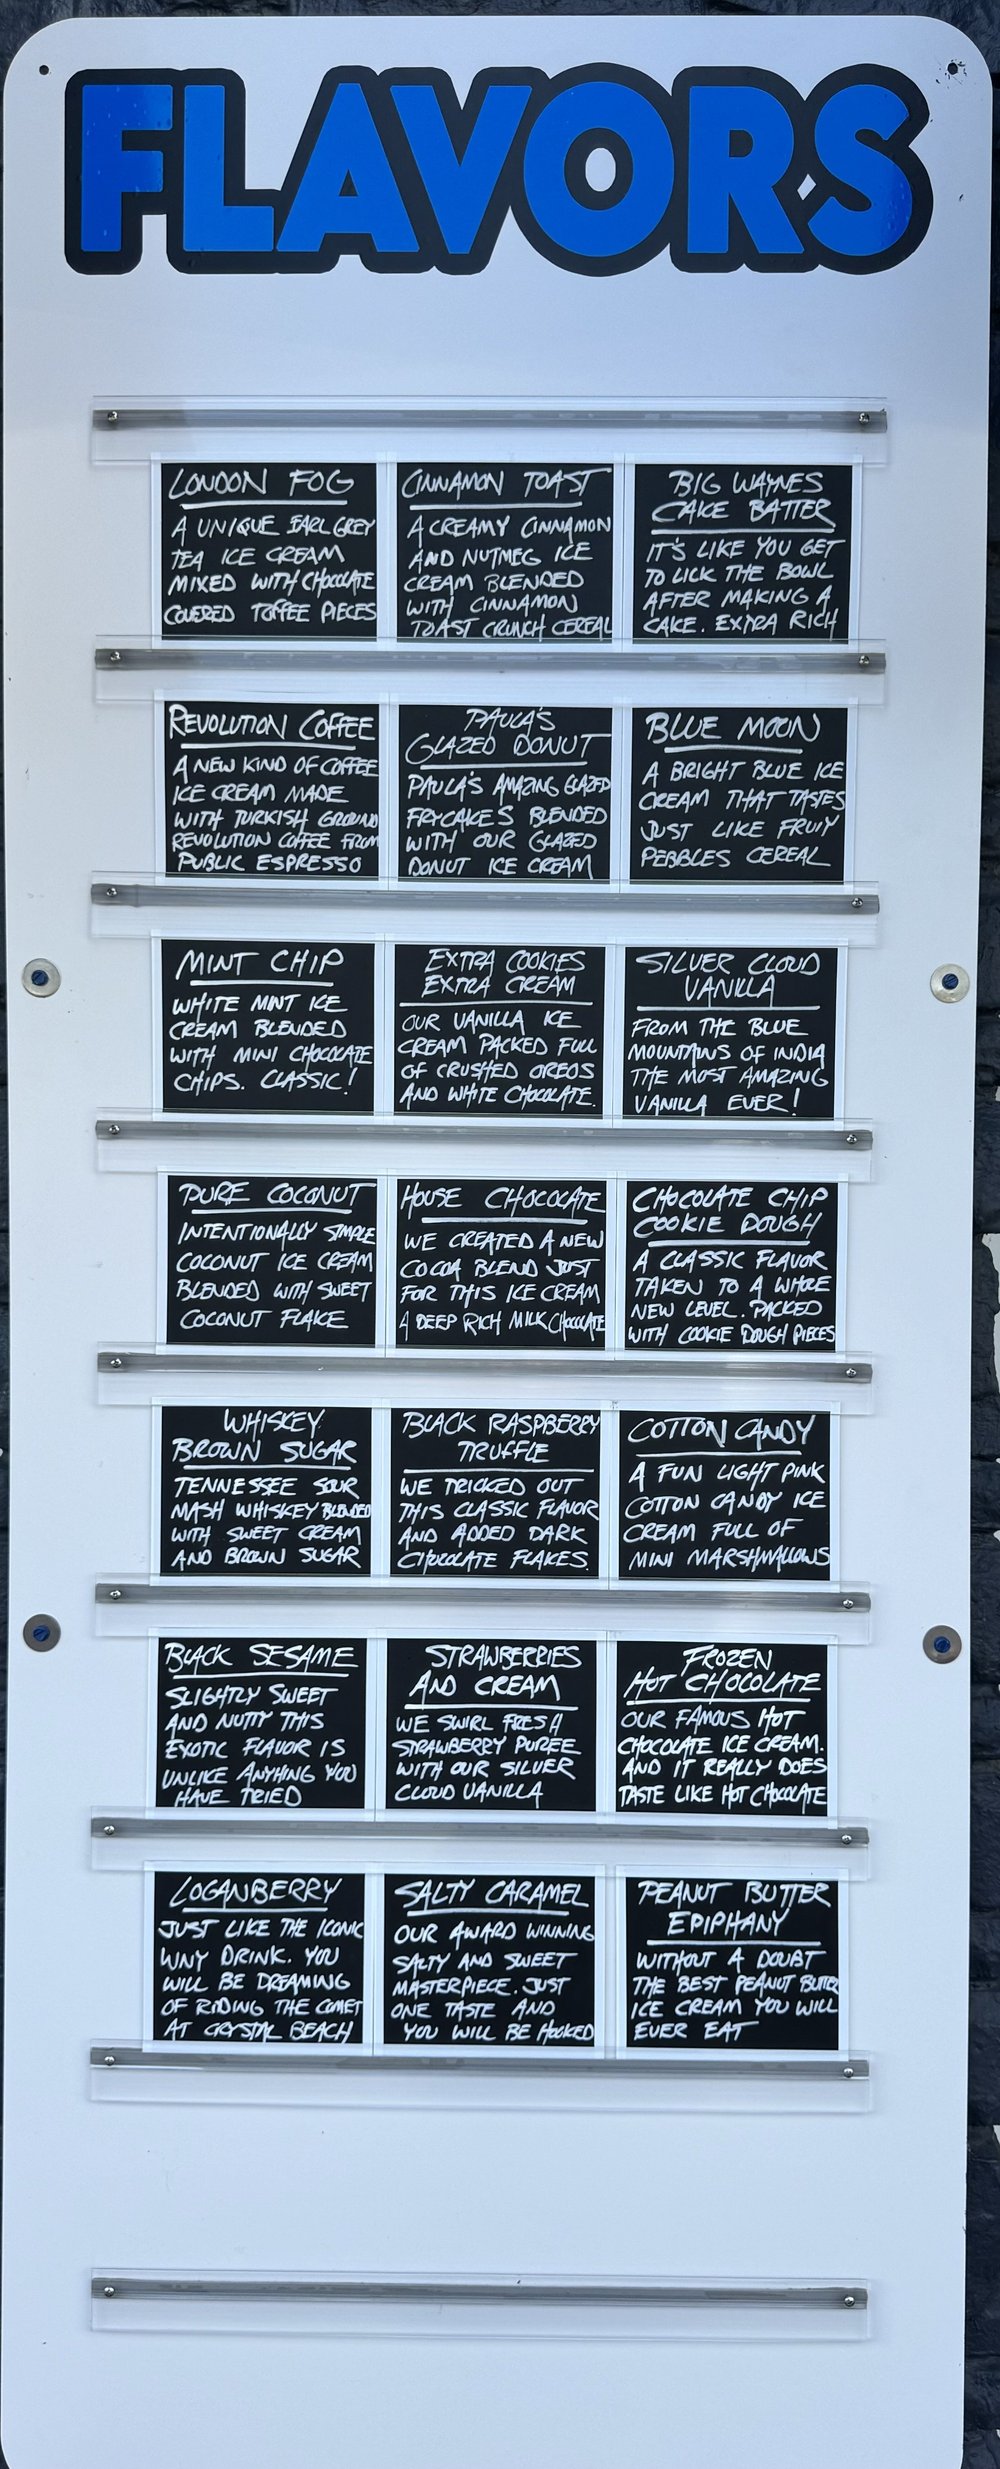 FLAVORS
LONDON FOG
A UNIQUE EARL GREY
TEA ICE CREAM
MIXED WITH CHOCOLATE
COVERED TOFFEE PIECES
CINNAMON TOAST
A CREAMY CINNAMON
AND NUTMEG ICE
CREAM BLENDED
WITH CINNAMON
TOAST CRUNCH CEREAL
BIG WAYNES
CAKE BATTER
IT'S LIKE YOU GET
TO LICK THE BOWL
AFTER MAKING A
CAKE. EXTRA RICH
REVOLUTION COFFEE
A NEW KIND OF COFFEE
ICE CREAM MADE
WITH TURKISH GROUND
REVOLUTION COFFEE FROM
PUBLIC ESPRESSO
PAULA'S
GLAZED DONUT
PAULA'S AMAZING GLAZED
FRYCAKES BLENDED
WITH OUR GLAZED
DONUT ICE CREAM
BLUE MOON
A BRIGHT BLUE ICE
CREAM THAT TASTES
JUST LIKE FRUIY
PEBBLES CEREAL
MINT CHIP
WHITE MINT ICE
CREAM BLENDED
WITH MINI CHOCOLATE
CHIPS. CLASSIC!
EXTRA COOKIES
EXTRA CREAM
OUR VANILLA ICE
CREAM PACKED FULL
OF CRUSHED OREOS
AND WHITE CHOCOLATE.
SILVER CLOUD
VANILLA
FROM THE BLUE
MOUNTAINS OF INDIA
THE MOST AMAZING
VANILLA EVER!
PURE COCONUT
INTENTIONALLY SIMPLE
COCONUT ICE CREAM
BLENDED WITH SWEET
COCONUT FLAKE
HOUSE CHOCOLATE
WE CREATED A NEW
COCOA BLEND JUST
FOR THIS ICE CREAM
A DEEP RICH MILK CHOCOLATE
CHOCOLATE CHIP
COOKIE DOUGH
A CLASSIC FLAVOR
TAKEN TO A WHOLE
NEW LEVEL. PACKED
WITH COOKIE DOUGH PIECES
WHISKEY
BROWN SUGAR
TENNESSEE SOUR
MASH WHISKEY BLENDED
WITH SWEET CREAM
AND BROWN SUGAR
BLACK RASPBERRY
TRUFFLE
WE TRICKED OUT
THIS CLASSIC FLAVOR
AND ADDED DARK
CHOCOLATE FLAKES.
COTTON CANDY
A FUN LIGHT PINK
COTTON CANDY ICE
CREAM FULL OF
MINI MARSHMALLOWS
BLACK SESAME
SLIGHTLY SWEET
AND NUTTY THIS
EXOTIC FLAVOR IS
UNLIKE ANYHING YOU
HAVE TRIED
STRAWBERRIES
AND CREAM
WE SWIRL FRESH
STRAWBERRY PUREE
WITH OUR SILVER
CLOUD VANILLA
FROZEN
HOT CHOCOLATE
OUR FAMOUS HOT
CHOCOLATE ICE CREAM.
AND IT REALLY DOES
TASTE LIKE HOT CHOCOLATE
LOGANBERRY
JUST LIKE THE ICONIC
WNY DRINK. YOU
WILL BE DREAMING
OF RIDING THE COMET
AT CRYSTAL BEACH
SALTY CARAMEL
OUR AWARD WINNING
SALTY AND SWEET
MASTERPIECE. JUST
ONE TASTE AND
YOU WILL BE HOOKED
PEANUT BUTTER
EPIPHANY
WITHOUT A DOUBT
THE BEST PEANUT BUTTER
ICE CREAM YOU WILL
EVER EAT